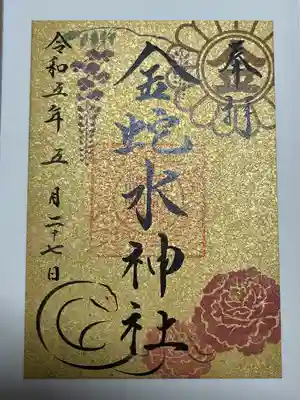 奉拝
金
金蛇水神社
令和五年五月二十七日